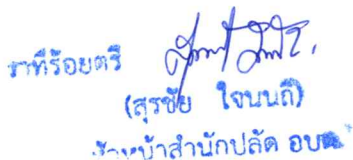 ว่าที่ร้อยตรี
(สุรชัย ใจนนถี)
หัวหน้าสำนักปลัด อบต